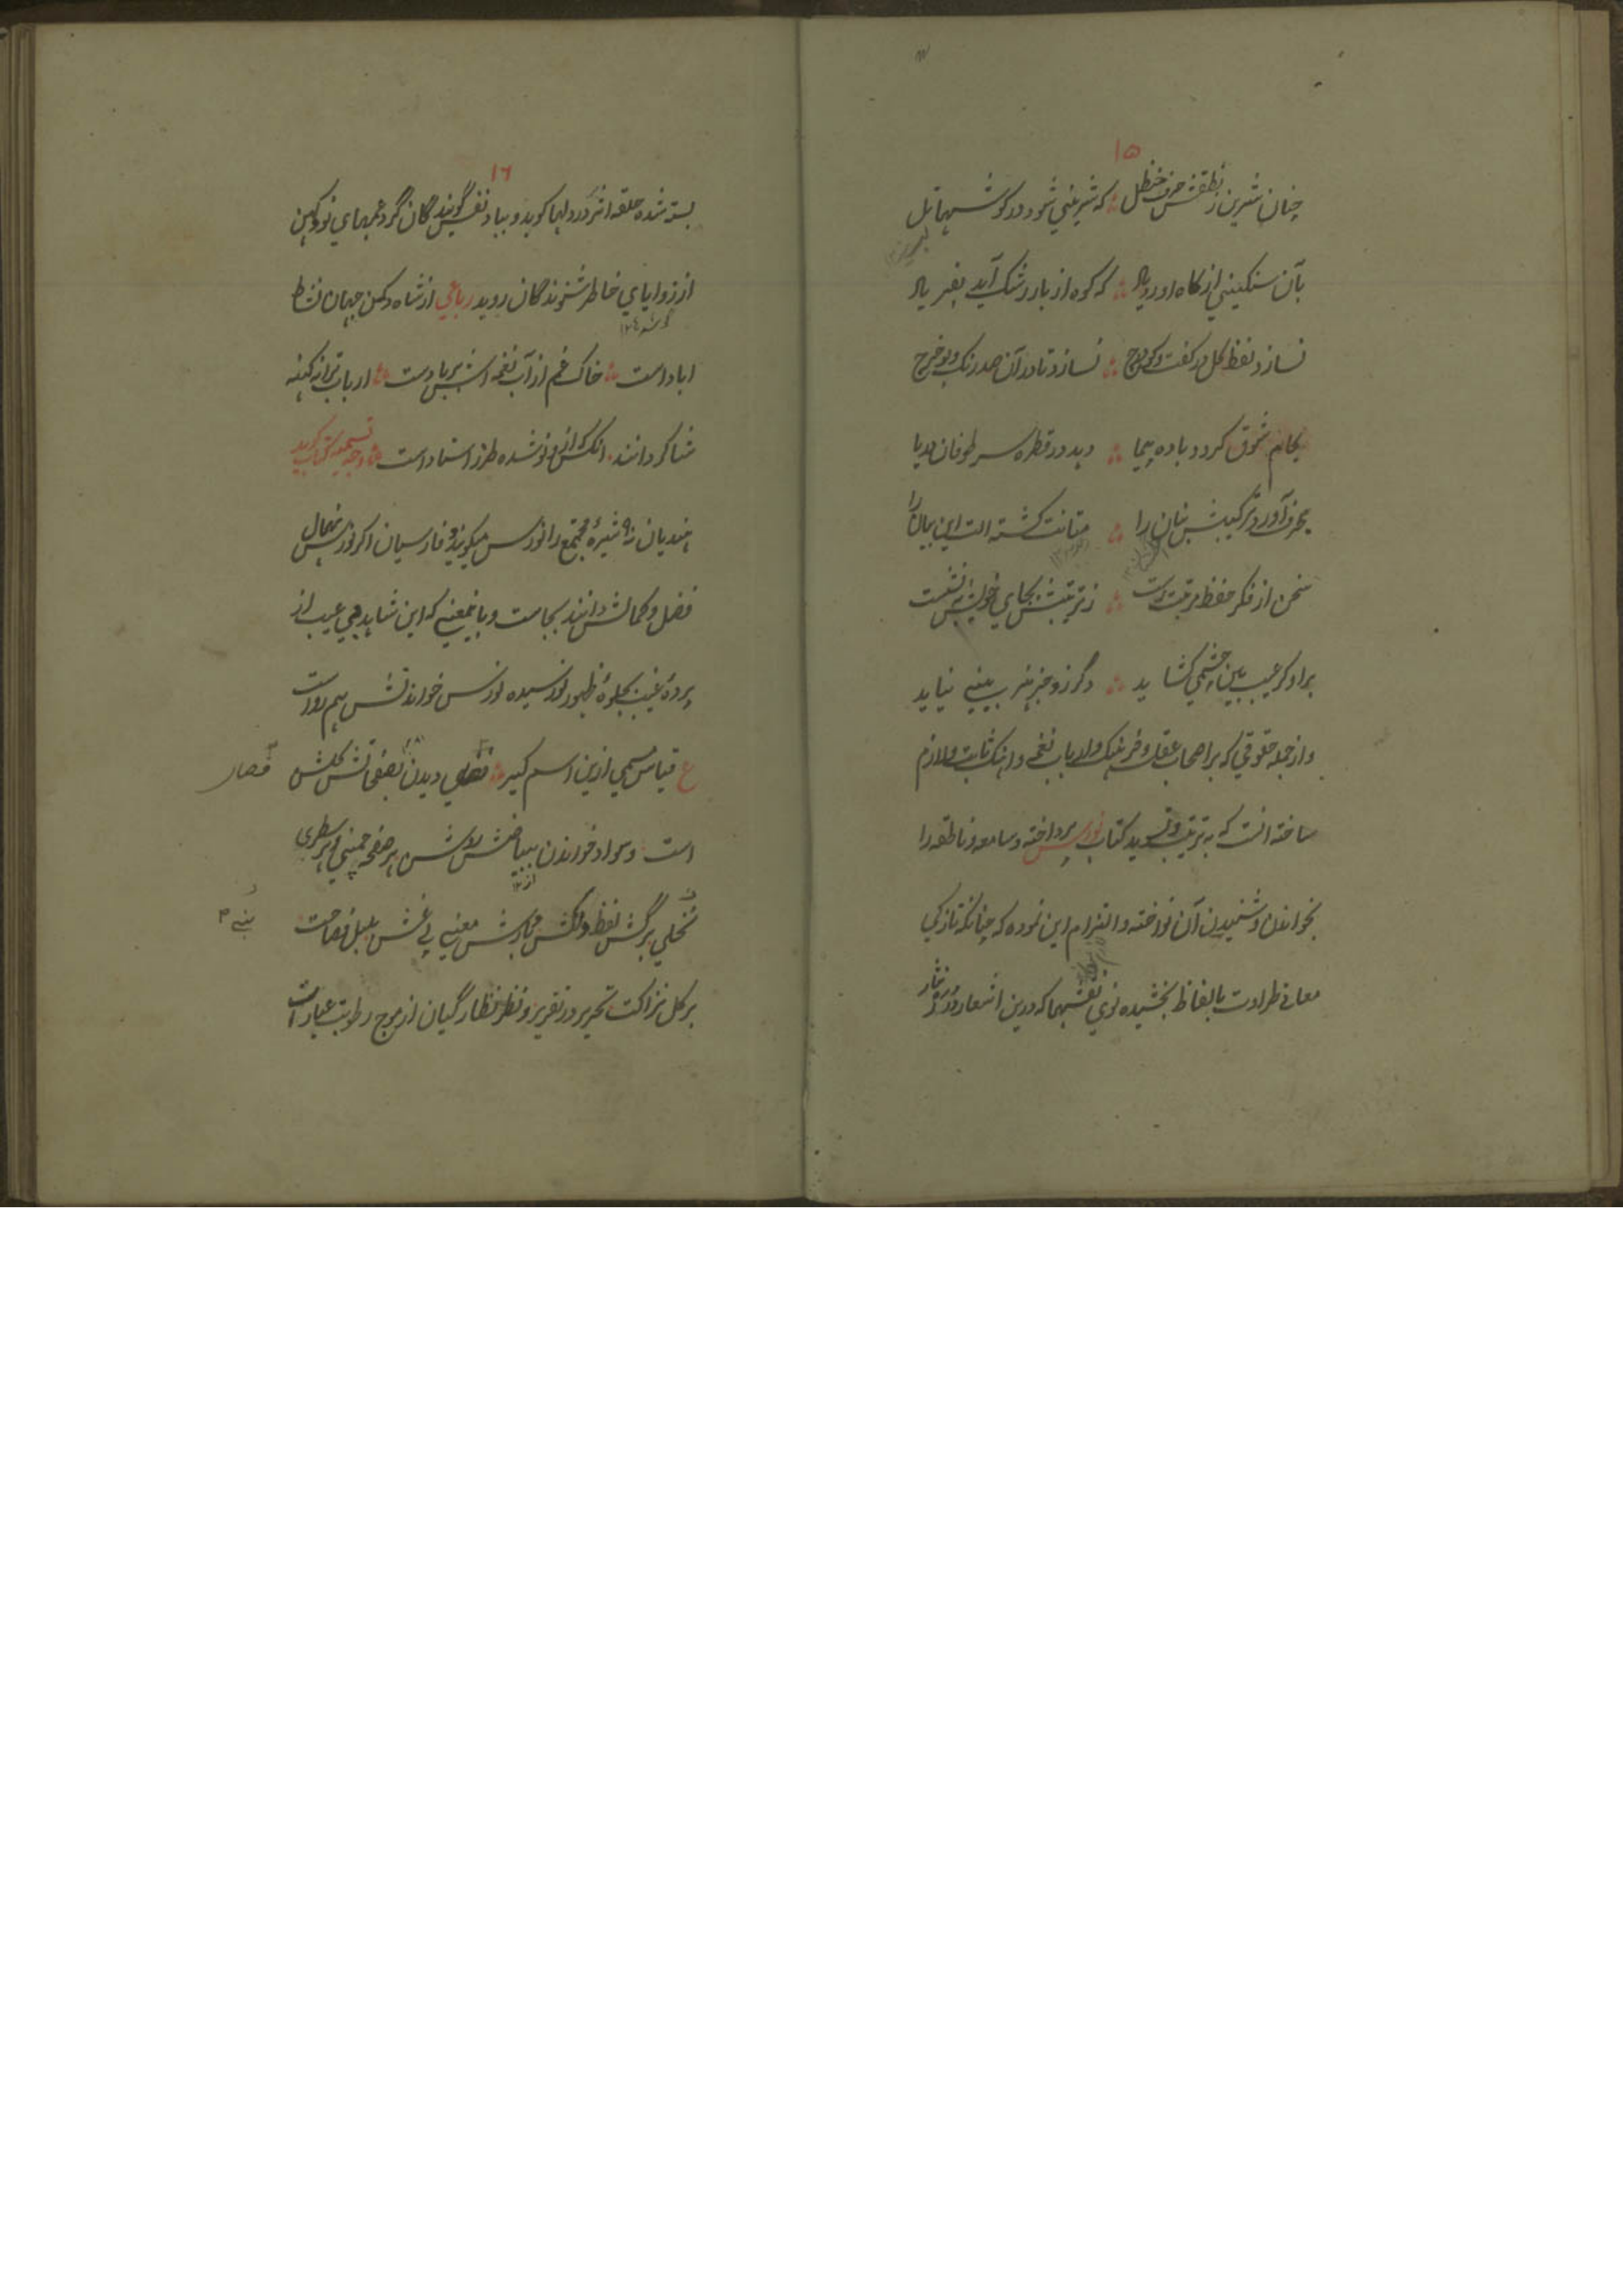 ۱۵
چنان شیرین ز نطقش حرف حنظل ؞ که شیرینی شود در گوشها تل
بآن سنکینی از کاه اورد یاد ؞ که کوه از بار رشک آید بفریاد
نسازد لفظ کل در کفت و کو درج ؞ نسازد تا در آن صد رنک و بو خرج
بجام شوق کردد باده پیما ؞ دهد در قطره سر طوفان دریا
بحرف آورد ترکیبش بنان را ؞ متانت کشته الت این بیان را
سخن از فکر حفظ مرتبت رست ؞ ز ترتیبش بجای خویش بنشست
براو کر عیب بین چشمی کشاید ؞ دگر زو جز هنر بینی نیاید
و از جمله حقوقی که بر اصحاب عقل و فرهنک و ارباب نغمه و اهنک ثابت و لازم
ساخته انست که به ترتیب و تسوید کتاب نورس پرداخته و سامعه و ناطقه را
بخواندن و شنیدن آن نواخته و التزام این نموده که چنانکه تازکی
معانی طراوت بالفاظ بخشیده نوی نقشها که درین اشعار در نثار
۱۶
بسته شده حلقه اثر بر در دلها کوبد و بباد نفس گویندگان گرد غمهای نو و کهن
از زوایای خاطر شنوندگان روبد رباعی از شاه دکن جهان نشاط
اباد است ؞ خاک غم از آب نغمه اش بر باد است ؞ ارباب ترانه کهنه
شاکردانند انکس که ازو نو شده طرز استاد است ؞ وجه تسمیه کتاب گوید
هندیان نه ۹ شیرهٔ مجتمع را نورس میکویند و فارسیان اکر نورس نهال
فضل و کمالش دانند بجاست و باینمعنی که این شاهد بی عیب از
پردهٔ غیب بجلوهٔ ظهور نو رسیده نورس خوانندش هم رواست
ع قیاس مسمی ازین اسم کیر ؞ دیدن بصفحاتش کلش
قصار
است و سواد خواندن ببیاضش روشن هر صفحه چمنی و هر سطری
نخلی برگش لفظ دلکش بارش معنی بی غش بلبل فصاحت
بر کل نزاکت تحریر در تقریر و نظر نظارگیان از موج رطوبت عبارات